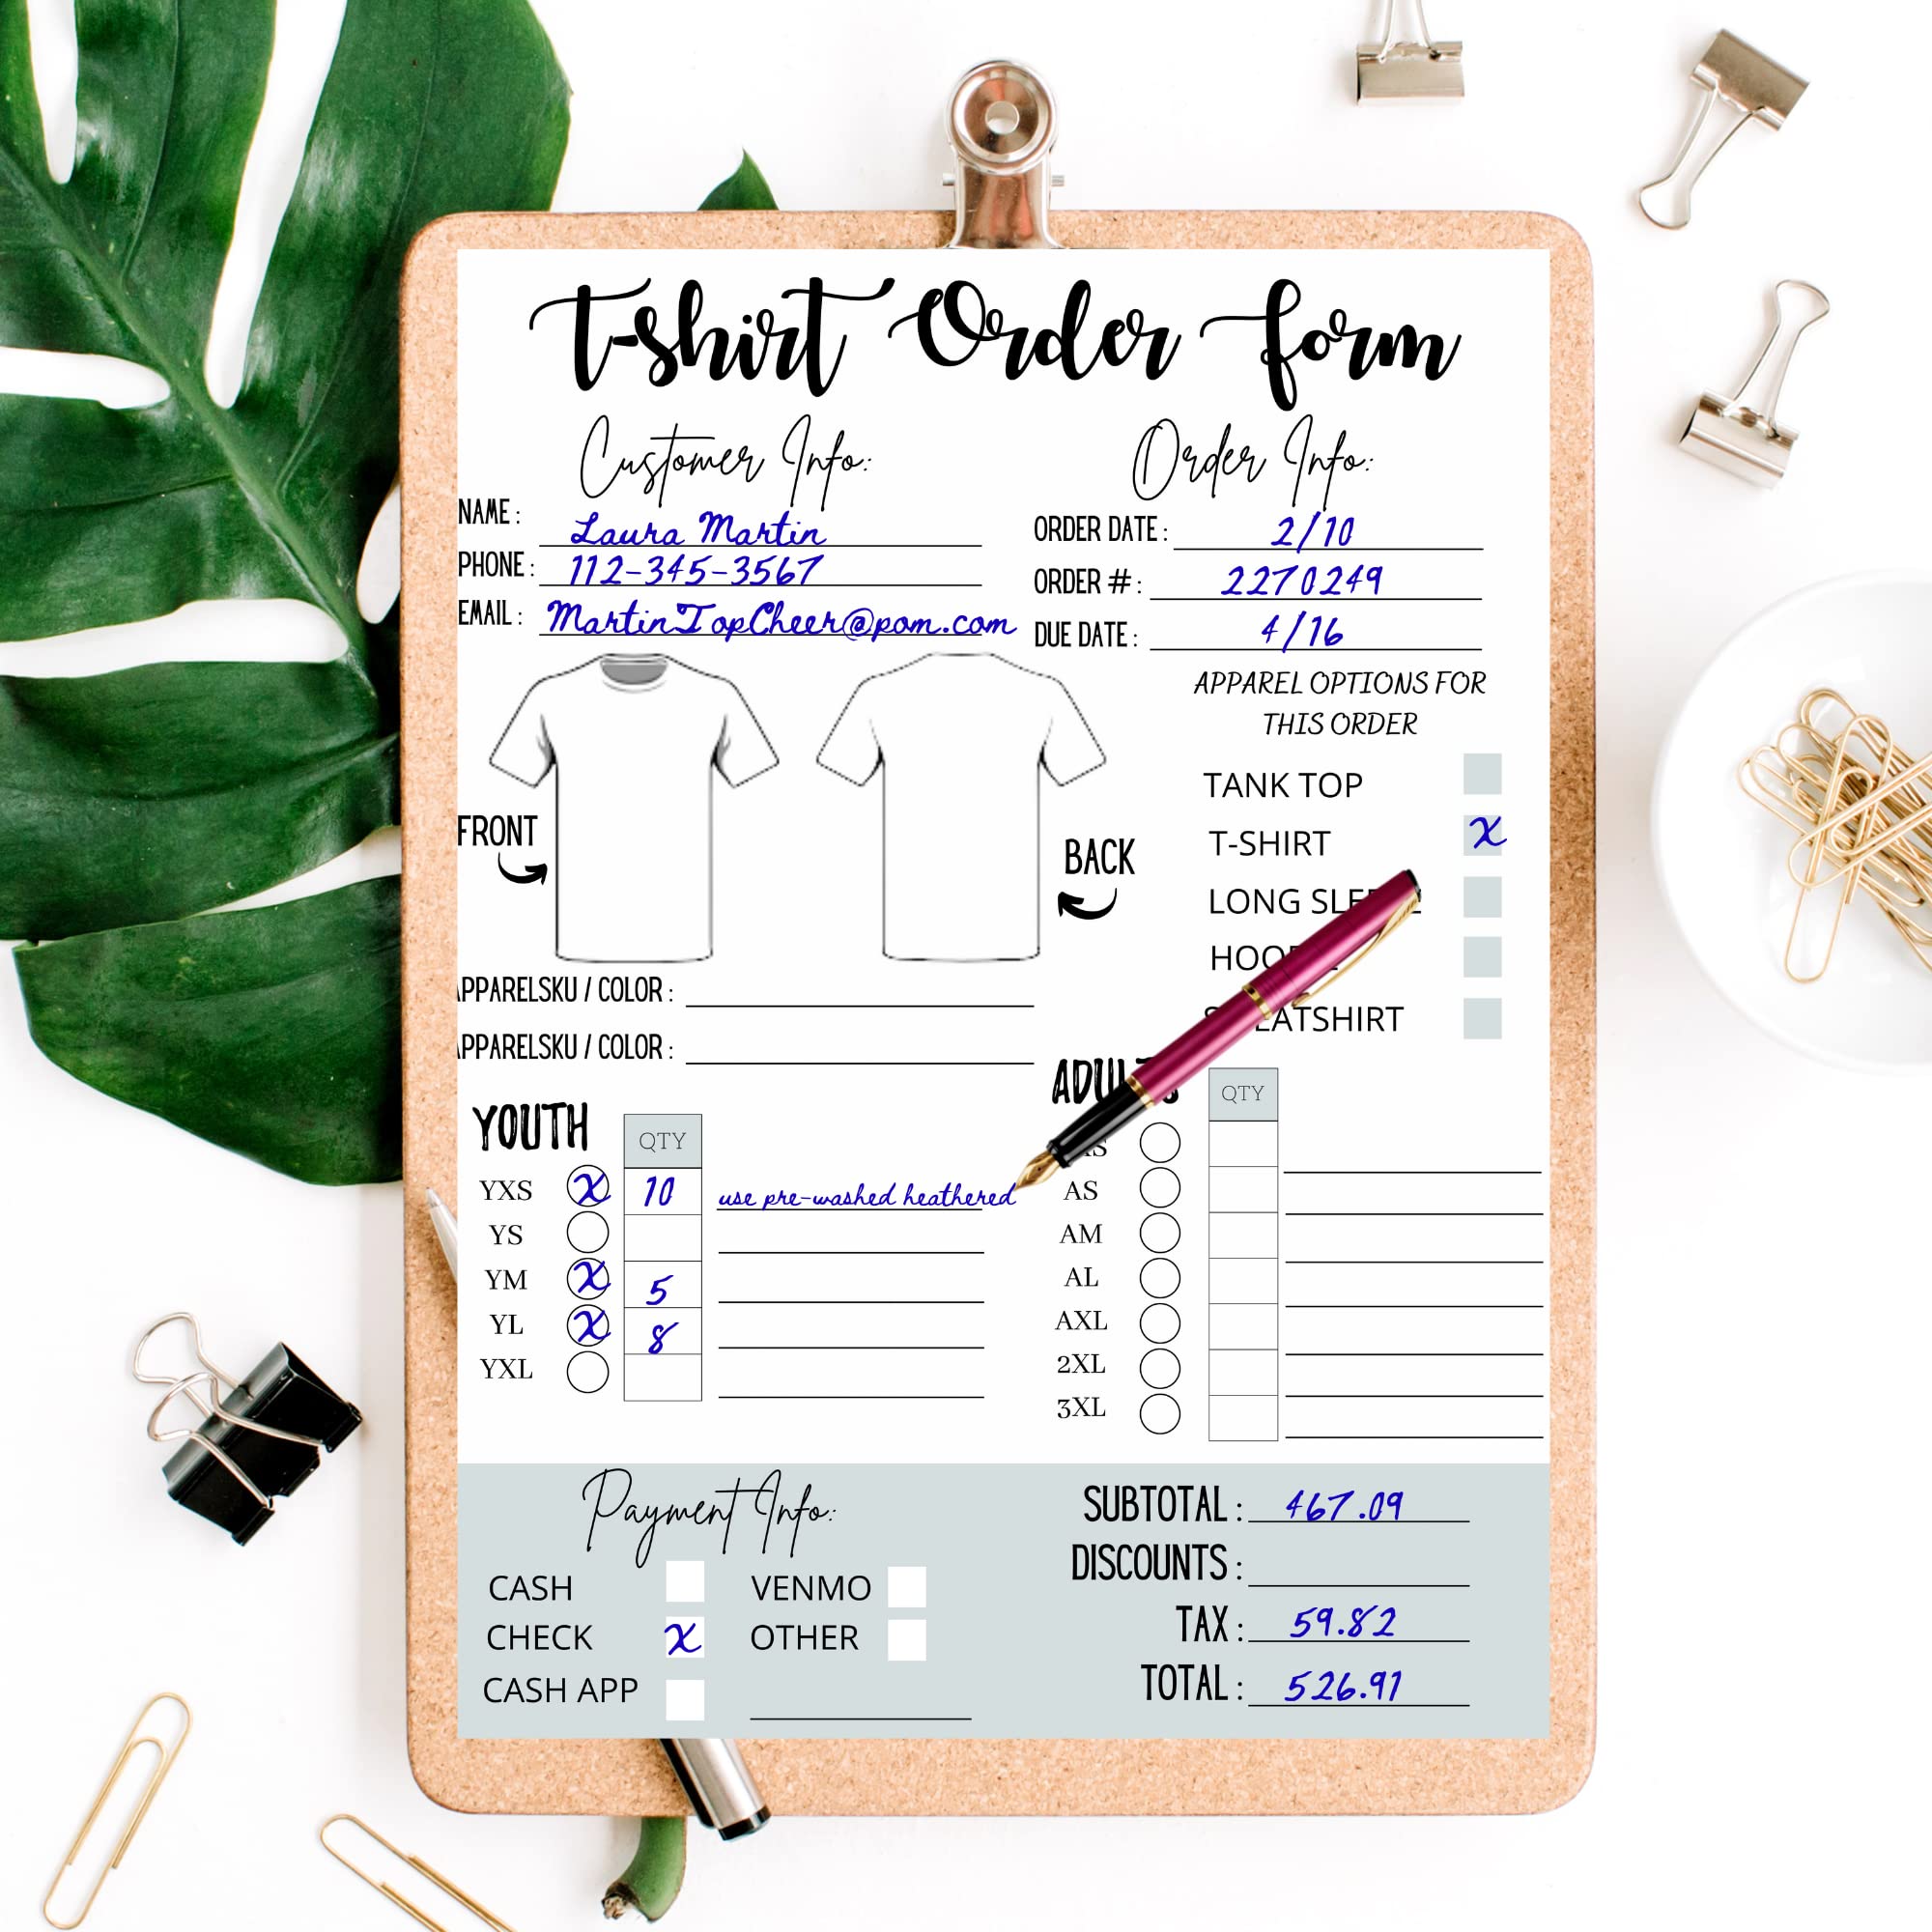 T-shirt Order form
Customer Info:
NAME : Laura Martin
PHONE : 112-345-3567
EMAIL : MartinTopCheer@pom.com
Order Info:
ORDER DATE : 2/10
ORDER # : 2270249
DUE DATE : 4/16
FRONT
BACK
APPAREL OPTIONS FOR
THIS ORDER
TANK TOP
T-SHIRT X
LONG SLE
HOO
EATSHIRT
PPARELSKU / COLOR :
PPARELSKU / COLOR :
YOUTH QTY
YXS X 10 use pre-washed heathered
YS
YM X 5
YL X 8
YXL
ADU QTY
AS
AM
AL
AXL
2XL
3XL
Payment Info:
CASH
CHECK X
CASH APP
VENMO
OTHER
SUBTOTAL : 467.09
DISCOUNTS :
TAX : 59.82
TOTAL : 526.91